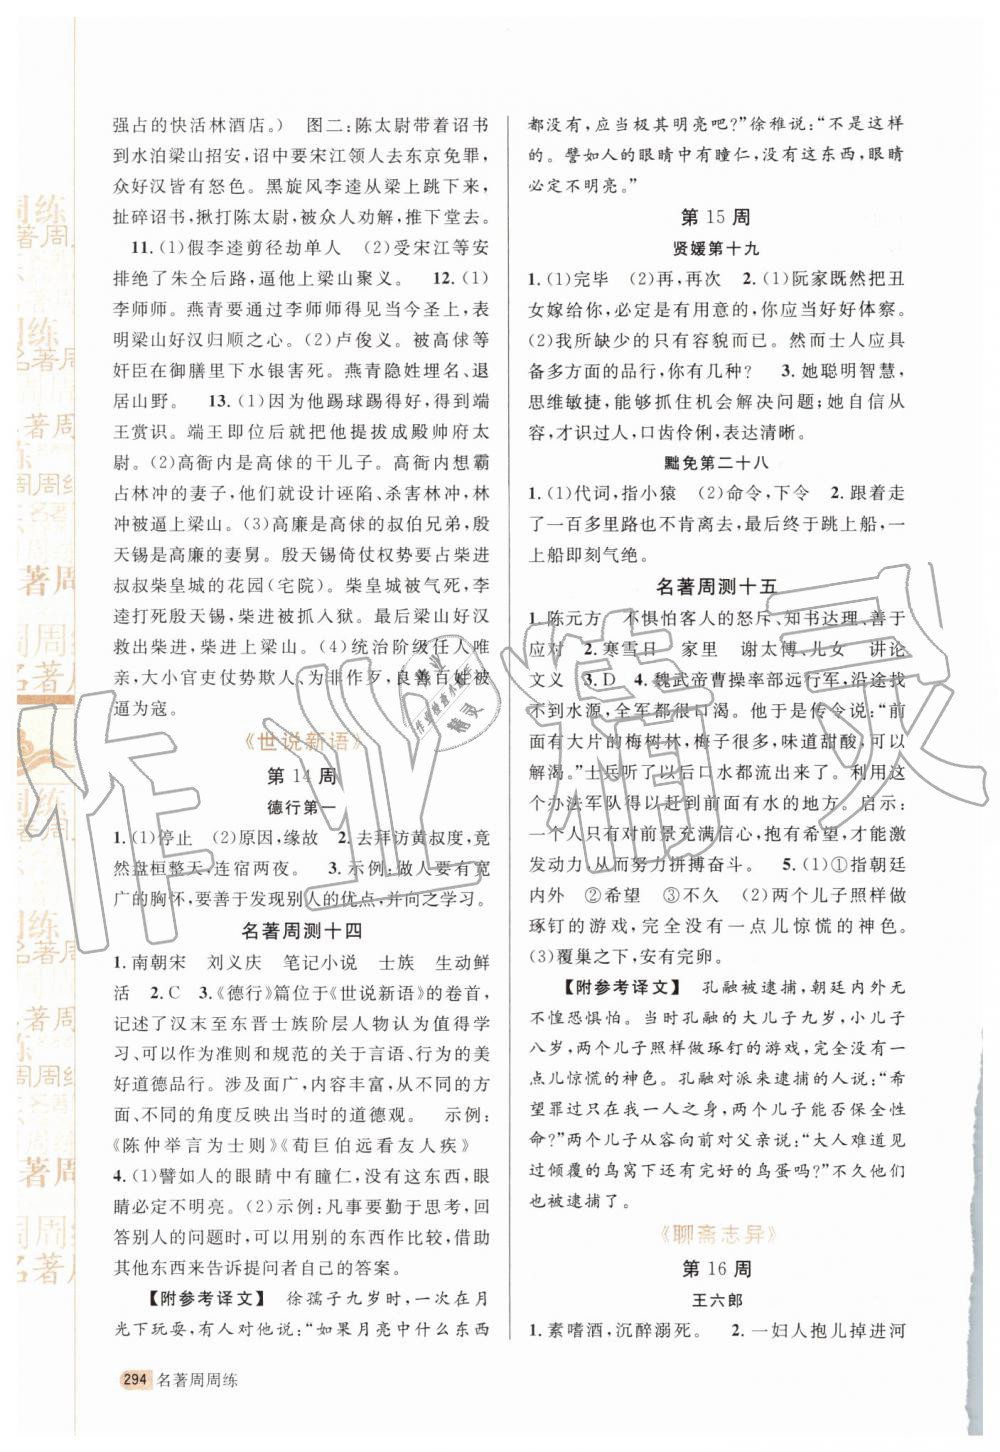 强占的快活林酒店。） 图二：陈太尉带着诏书
到水泊梁山招安，诏中要宋江领人去东京免罪，
众好汉皆有怒色。黑旋风李逵从梁上跳下来，
扯碎诏书，揪打陈太尉，被众人劝解，推下堂去。
11.(1)假李逵剪径劫单人 (2)受宋江等安
排绝了朱仝后路，逼他上梁山聚义。 12.(1)
李师师。燕青要通过李师师得见徽宗一面，表
明梁山归顺之心。(2)卢俊义。被高俅等
奸臣在御膳里下水银害死。燕青隐姓埋名、退
居山野。 13.(1)因为他踢球踢得好，得到端
王赏识。端王即位后就把他提拔成殿帅府太
尉。(2)高衙内是高俅的干儿子。高衙内想霸
占林冲的妻子，他们就设计诬陷、杀害林冲，林
冲被逼上梁山。(3)高廉是高俅的叔伯兄弟，殷
天锡是高廉的妻舅。殷天锡倚仗权势要占柴进
叔叔柴皇城的花园（宅院）。柴皇城被气死，李
逵打死殷天锡，柴进被抓入狱。最后梁山好汉
救出柴进，柴进上梁山。(4)统治阶级任人唯
亲，大小官吏仗势欺人、为非作歹，良善百姓被
逼为寇。
《世说新语》
第14周
德行第一
1.(1)停止 (2)原因，缘故 2.去拜访黄叔度，竟
然盘桓整天，连宿两夜。 3.示例：做人要有宽
广的胸怀，要善于发现别人的优点，并向之学习。
名著周测十四
1.南朝宋 刘义庆 笔记小说 士族 生动鲜
活 2.C 3.《德行》篇位于《世说新语》的卷首，
记述了汉末至东晋士族阶层人物认为值得学
习、可以作为准则和规范的关于言语、行为的美
好道德品行。涉及面广，内容丰富，从不同的方面、
不同的角度反映出当时的道德观。 示例：
《陈仲举言为士则》《荀巨伯远看友人疾》
4.(1)譬如人的眼睛中有瞳仁，没有这东西，眼
睛就必定不明亮。(2)示例：凡事要善于思考，在回
答别人的问题时，可以用别的东西作比较，借助
其他东西来告诉提问者自己的答案。
【附参考译文】 徐孺子九岁时，一次在月
光下玩耍，有人对他说：“如果月亮中什么东西
都没有，应当极其明亮吧？”徐稚说：“不是这样
的。譬如人的眼睛中有瞳仁，没有这东西，眼睛
必定不明亮。”
第15周
贤媛第十九
1.(1)完毕 (2)再，再次 2.(1)阮家既然把丑
女嫁给你，必定是有用意的，你应当好好体察。
(2)我所缺少的只有容貌而已。然而士人应具
备多方面的品行，你有几种？ 3.她聪明智慧，
思维敏捷，能够抓住机会解决问题；她自信从
容，才识过人，口齿伶俐，表达清晰。
黜免第二十八
1.(1)代词，指小猿 (2)命令，下令 2.跟着走
了一百多里路也不肯离去，最后终于跳上船，一
上船即刻气绝。
名著周测十五
1.陈元方 不惧怕客人的怒斥、知书达理、善于
应对 2.寒雪日 家里 谢太傅、儿女 讲论
文义 3.D 4.魏武帝曹操率部远行军，沿途找
不到水源，全军都很口渴。于是传令说：“前
面有大片的梅树林，梅子很多，味道甜酸，可以
解渴。”士兵听了以后口水都流出来了。利用这
个办法军队得以赶到前面有水的地方。启示：
一个人只有对前景充满信心，抱有希望，才能激
发动力，从而努力拼搏奋斗。 5.(1)①指朝廷
内外 ②希望 ③不久 (2)两个儿子照样做
琢钉的游戏，竟然没有一点儿惊慌的神色。
(3)覆巢之下，安有完卵。
【附参考译文】 孔融被逮捕，朝廷内外无
不惶恐惧怕。当时孔融的大儿子九岁，小儿子
八岁，两个儿子照样做琢钉的游戏，竟然没有一
点儿惊慌的神色。孔融对派来逮捕的人说：“希
望罪过只我一人之身，两个儿子能否保全性
命？”两个儿子从容向前对父亲说：“大人难道见
过倾覆的鸟窝下还有完好的鸟蛋吗？”不久他们
也被逮捕了。
《聊斋志异》
第16周
王六郎
1.素嗜酒，沉醉溺死。 2.一妇人抱儿掉进河
294 名著周周练